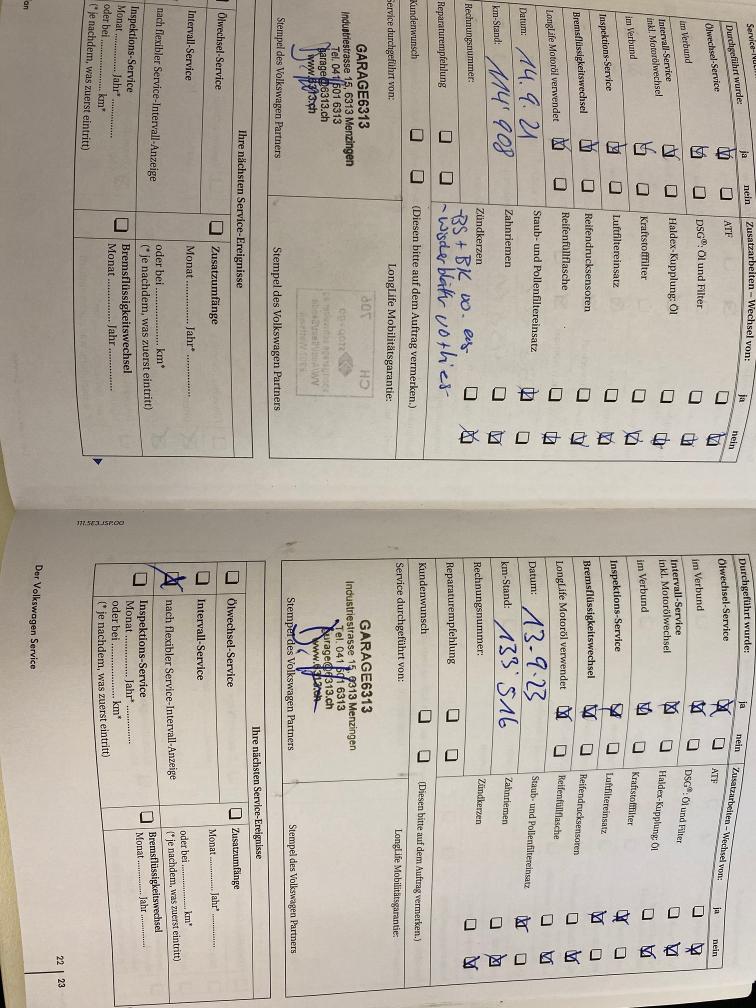 Service-
Durchgeführt wurde: ja nein
Ölwechsel-Service
im Verbund
Intervall-Service
inkl. Motorölwechsel
im Verbund
Inspektions-Service
Bremsflüssigkeitswechsel
LongLife Motoröl verwendet
Datum: 14.9.21
km-Stand: 114'908
Rechnungsnummer:
Reparaturempfehlung
Kundenwunsch
Service durchgeführt von:
GARAGE6313
Industriestrasse 15, 6313 Menzingen
Tel. 041 501 6313
garage@6313.ch
www.6313.ch
Stempel des Volkswagen Partners
Zusatzarbeiten – Wechsel von: ja nein
ATF
DSG®: Öl und Filter
Haldex-Kupplung: Öl
Kraftstofffilter
Luftfiltereinsatz
Reifendrucksensoren
Reifenfüllflasche
Staub- und Pollenfiltereinsatz
Zahnriemen
Zündkerzen
-BS + BK
(Diesen bitte auf dem Auftrag vermerken.)
LongLife Mobilitätsgarantie:
Stempel des Volkswagen Partners
Ihre nächsten Service-Ereignisse
Ölwechsel-Service
Intervall-Service
nach flexibler Service-Intervall-Anzeige
Inspektions-Service
Monat ............ Jahr* ............
oder bei ............ km*
(* je nachdem, was zuerst eintritt)
Zusatzumfänge
Monat ............ Jahr* ............
oder bei ............ km*
(* je nachdem, was zuerst eintritt)
Bremsflüssigkeitswechsel
Monat ............ Jahr ............
111.5E3.JSP.00
Durchgeführt wurde: ja nein
Ölwechsel-Service
im Verbund
Intervall-Service
inkl. Motorölwechsel
im Verbund
Inspektions-Service
Bremsflüssigkeitswechsel
LongLife Motoröl verwendet
Datum: 13.9.23
km-Stand: 133'516
Rechnungsnummer:
Reparaturempfehlung
Kundenwunsch
Service durchgeführt von:
GARAGE6313
Industriestrasse 15, 6313 Menzingen
Tel. 041 501 6313
garage@6313.ch
www.6313.ch
Stempel des Volkswagen Partners
Zusatzarbeiten – Wechsel von: ja nein
ATF
DSG®: Öl und Filter
Haldex-Kupplung: Öl
Kraftstofffilter
Luftfiltereinsatz
Reifendrucksensoren
Reifenfüllflasche
Staub- und Pollenfiltereinsatz
Zahnriemen
Zündkerzen
(Diesen bitte auf dem Auftrag vermerken.)
LongLife Mobilitätsgarantie:
Stempel des Volkswagen Partners
Ihre nächsten Service-Ereignisse
Ölwechsel-Service
Intervall-Service
nach flexibler Service-Intervall-Anzeige
Inspektions-Service
Monat ............ Jahr* ............
oder bei ............ km*
(* je nachdem, was zuerst eintritt)
Zusatzumfänge
Monat ............ Jahr* ............
oder bei ............ km*
(* je nachdem, was zuerst eintritt)
Bremsflüssigkeitswechsel
Monat ............ Jahr ............
Der Volkswagen Service
22 | 23